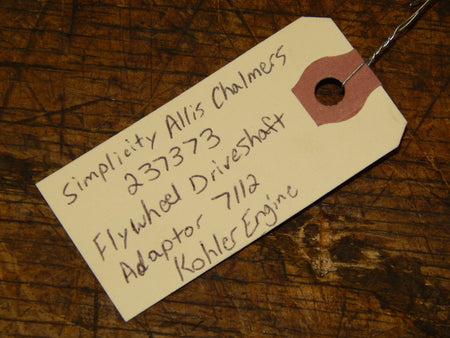 Simplicity Allis Chalmers
237373
Flywheel Driveshaft
Adaptor 7112
Kohler Engine